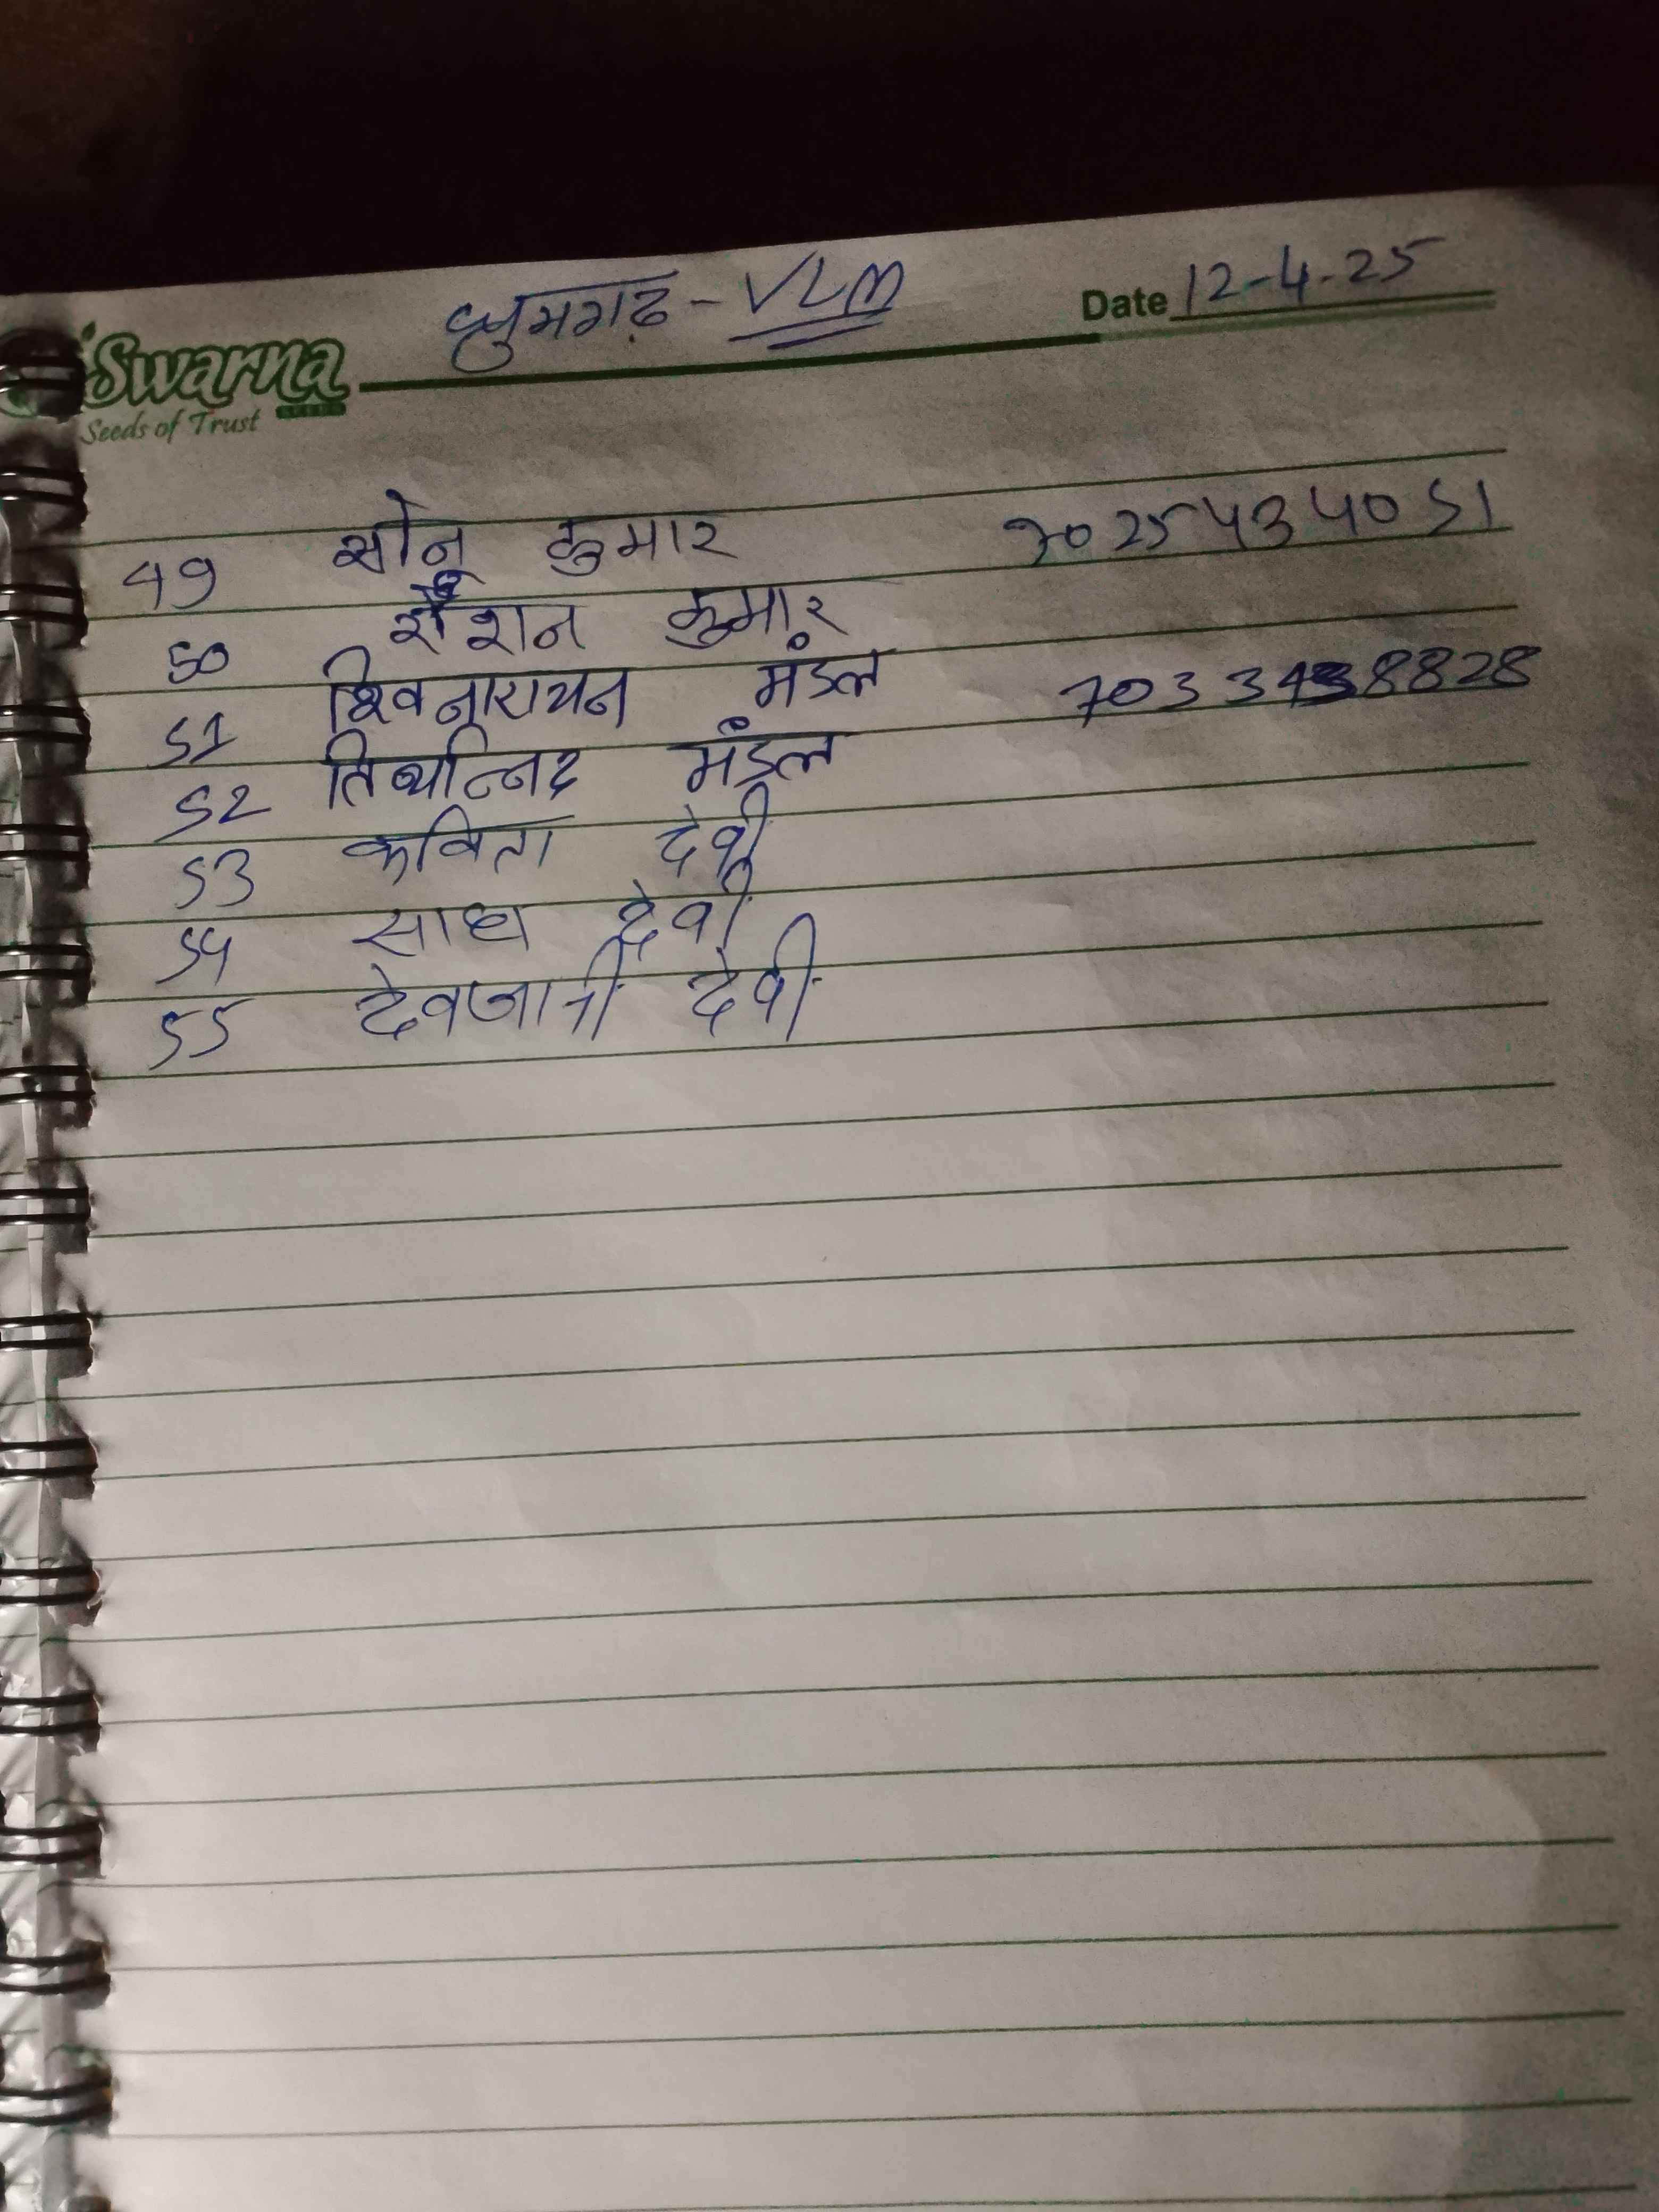 धुमगढ़ - VLM
Date 12-4-25
Swarna
Seeds of Trust
49 सोनु कुमार 7025434051
50 रौशन कुमार
51 शिवनारायन मंडल
52 मंडल
53 कविता देवी
54 साधा देवी
55 देवजानी देवी